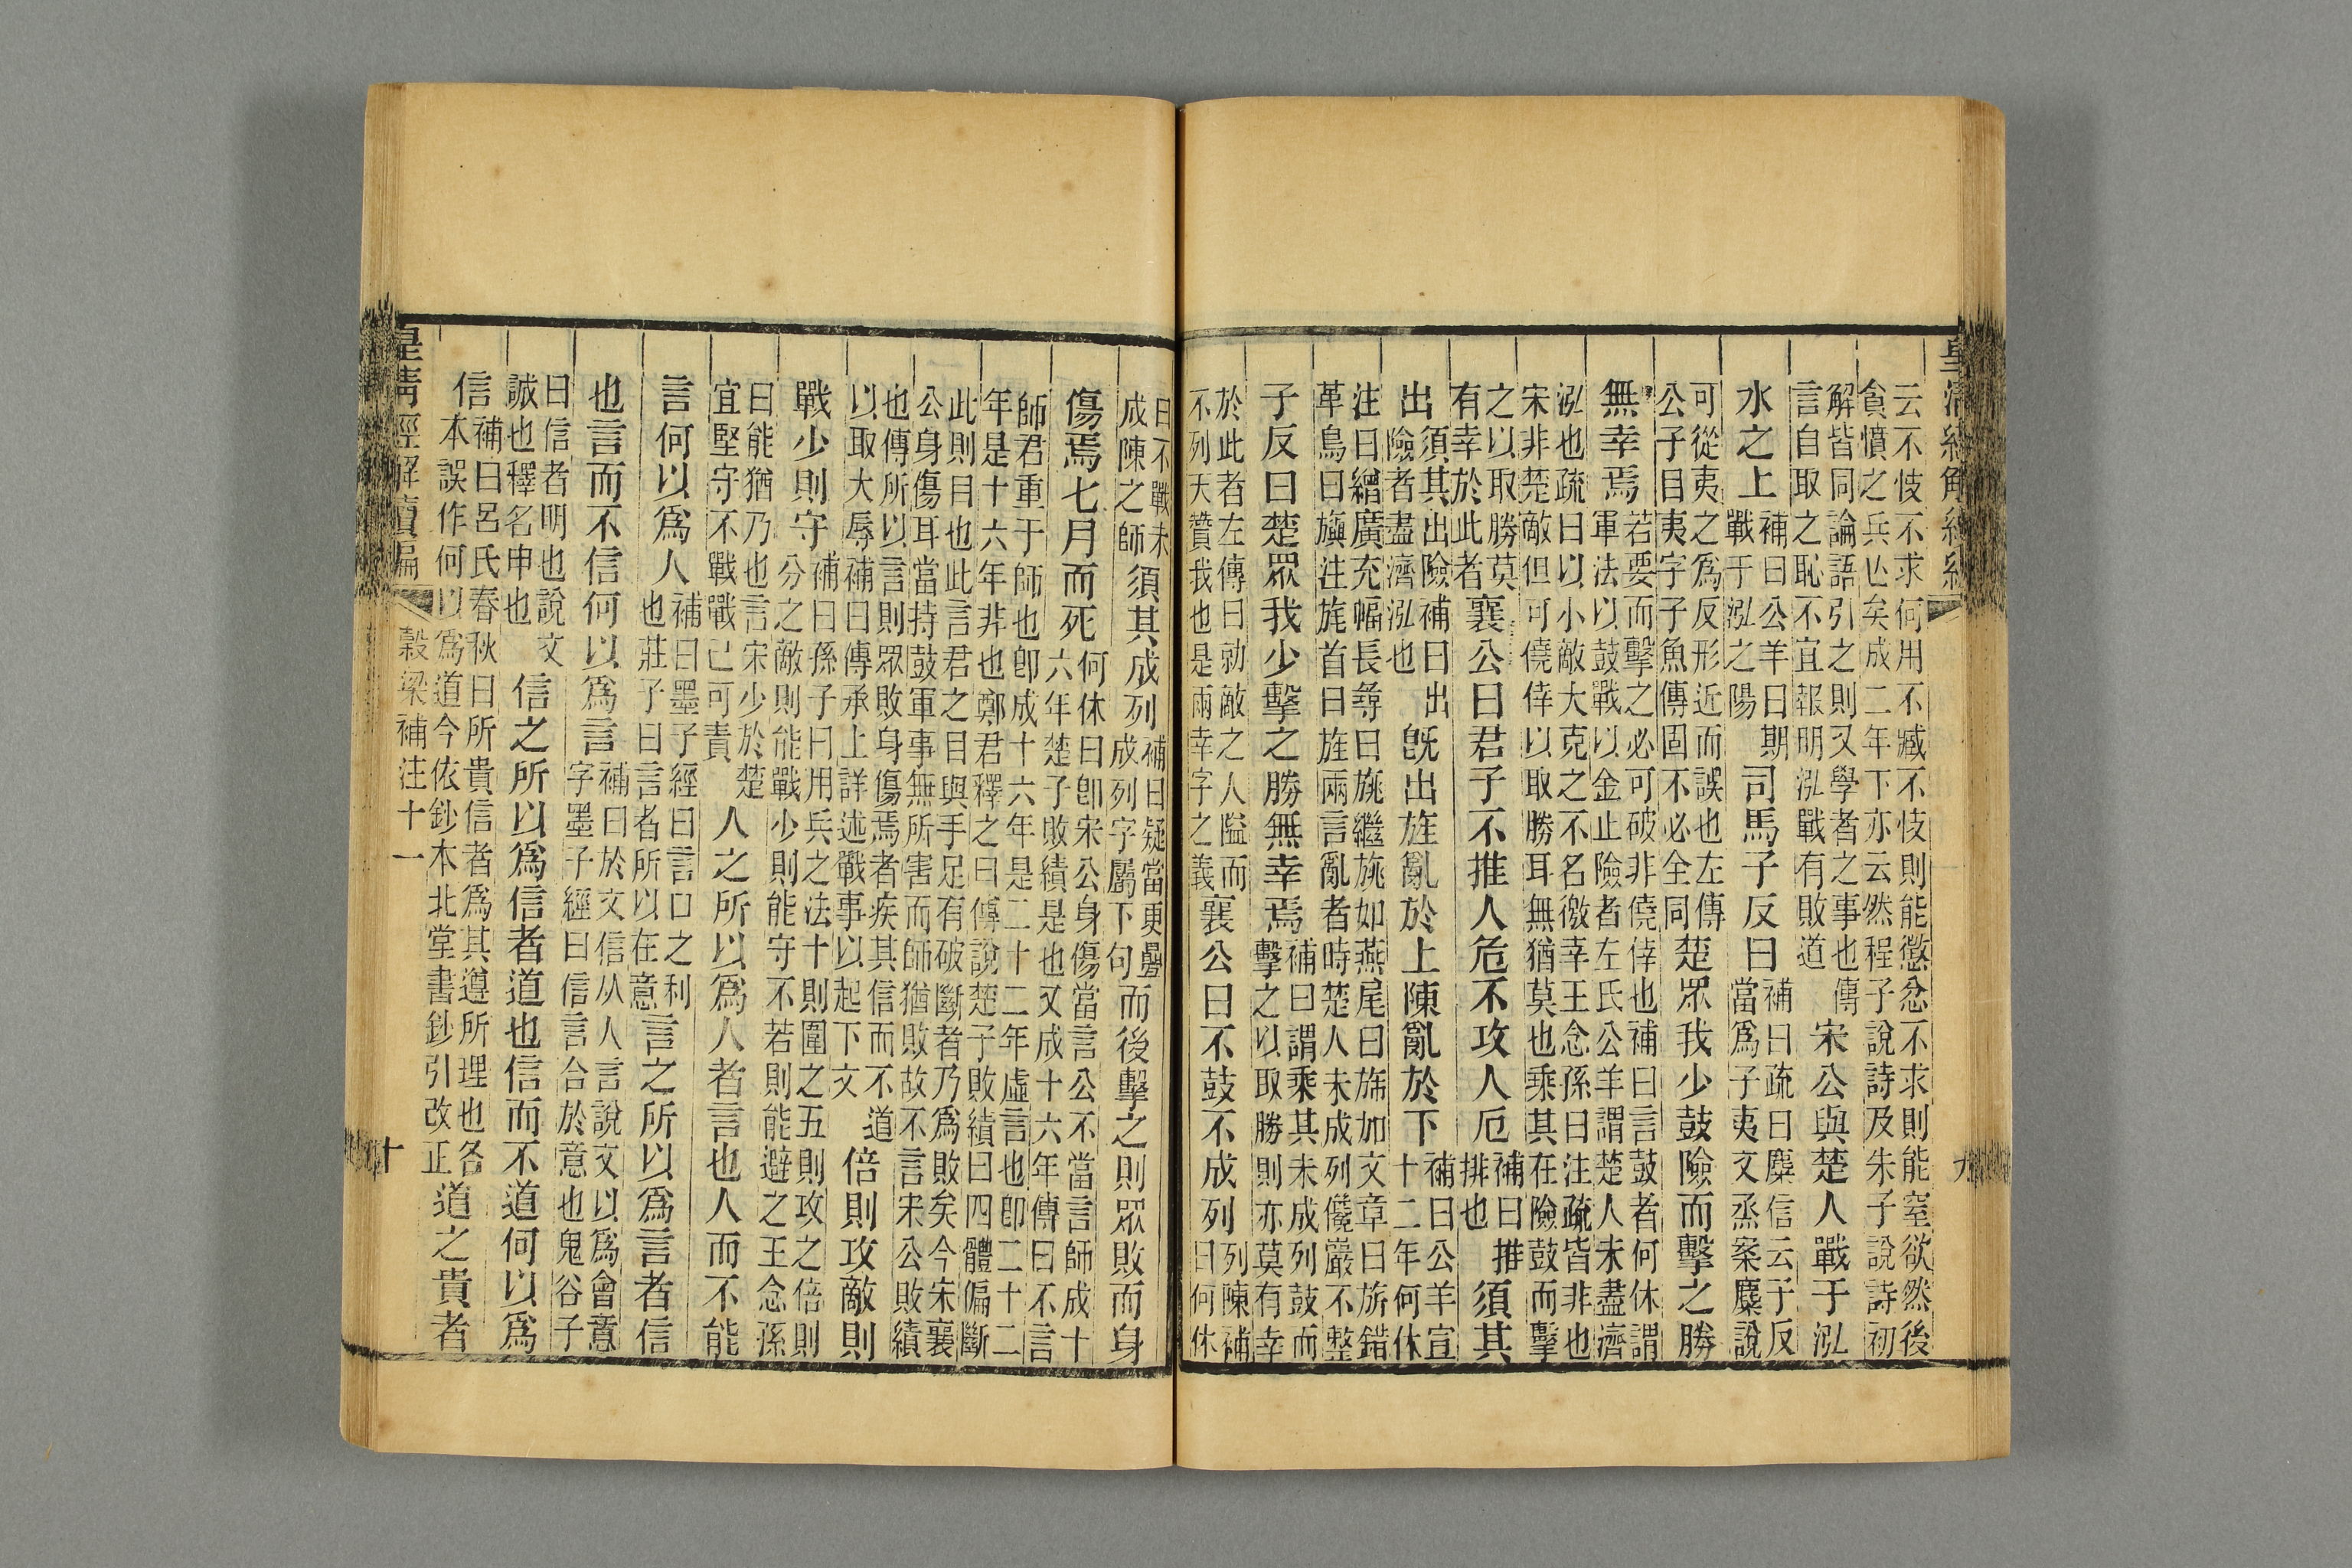 皇清經解續編
九
云不忮不求何用不臧不忮則能懲忿不求則能窒欲然後
貪憤之兵亾矣成二年下亦云然程子說詩及朱子說詩初
解皆同論語引之則又學者之事也傳
言自取之恥不宜報明泓戰有敗道
宋公與楚人戰于泓
水之上
補曰公羊曰期
戰于泓之陽
司馬子反曰
補曰疏曰麋信云子反
當爲子夷文烝案麋說
可從夷之爲反形近而誤也左傳
公子目夷字子魚傳固不必全同
楚眾我少鼓險而擊之勝
無幸焉
若要而擊之必可破非僥倖也補曰言鼓者何休謂
軍法以鼓戰以金止險者左氏公羊謂楚人未盡濟
泓也疏曰以小敵大克之不名徼幸王念孫曰注疏皆非也
宋非楚敵但可僥倖以取勝耳無猶莫也乘其在險鼓而擊
之以取勝莫
有幸於此者
襄公曰君子不推人危不攻人厄
補曰推
排也
須其
出
須其出險補曰出
險者盡濟泓也
旣出旌亂於上陳亂於下
補曰公羊宣
十二年何休
注曰繒廣充幅長尋曰旐繼旐如燕尾曰旆加文章曰旂錯
革鳥曰旟注旄首曰旌兩言亂者時楚人未成列儳巖不整
子反曰楚眾我少擊之勝無幸焉
補曰謂乘其未成列鼓而
擊之以取勝則亦莫有幸
於此者左傳曰勍敵之人隘而
不列天贊我也是兩幸字之義
襄公曰不鼓不成列
列陳補
曰何休
曰不戰未
成陳之師
須其成列
補曰疑當更疊
成列字屬下句
而後擊之則眾敗而身
傷焉七月而死
何休曰卽宋公身傷當言公不當言師成十
六年楚子敗績是也又成十六年傳曰不言
師君重于師也卽成十六年是二十二年虛言也卽二十二
年是十六年非也鄭君釋之曰傳說楚子敗績曰四體偏斷
此則目也此言君之目與手足有破斷者乃爲敗矣今宋襄
公身傷耳當持鼓軍事無所害而師猶敗故不言宋公敗績
也傳所以言則眾敗身傷焉者疾其信而不道
以取大辱補曰傳承上詳述戰事以起下文
倍則攻敵則
戰少則守
補曰孫子曰用兵之法十則圍之五則攻之倍則
分之敵則能戰少則能守不若則能避之王念孫
曰能猶乃也言宋少於楚
宜堅守不戰戰已可責
人之所以爲人者言也人而不能
言何以爲人
補曰墨子經曰言口之利
也莊子曰言者所以在意
言之所以爲言者信
也言而不信何以爲言
補曰於文信从人言說文以爲會意
字墨子經曰信言合於意也鬼谷子
曰信者明也說文
誠也釋名申也
信之所以爲信者道也信而不道何以爲
信
補曰呂氏春秋曰所貴信者爲其遵所理也各
本誤作何以爲道今依鈔本北堂書鈔引改正
道之貴者
皇清經解續編
穀梁補注十一
十